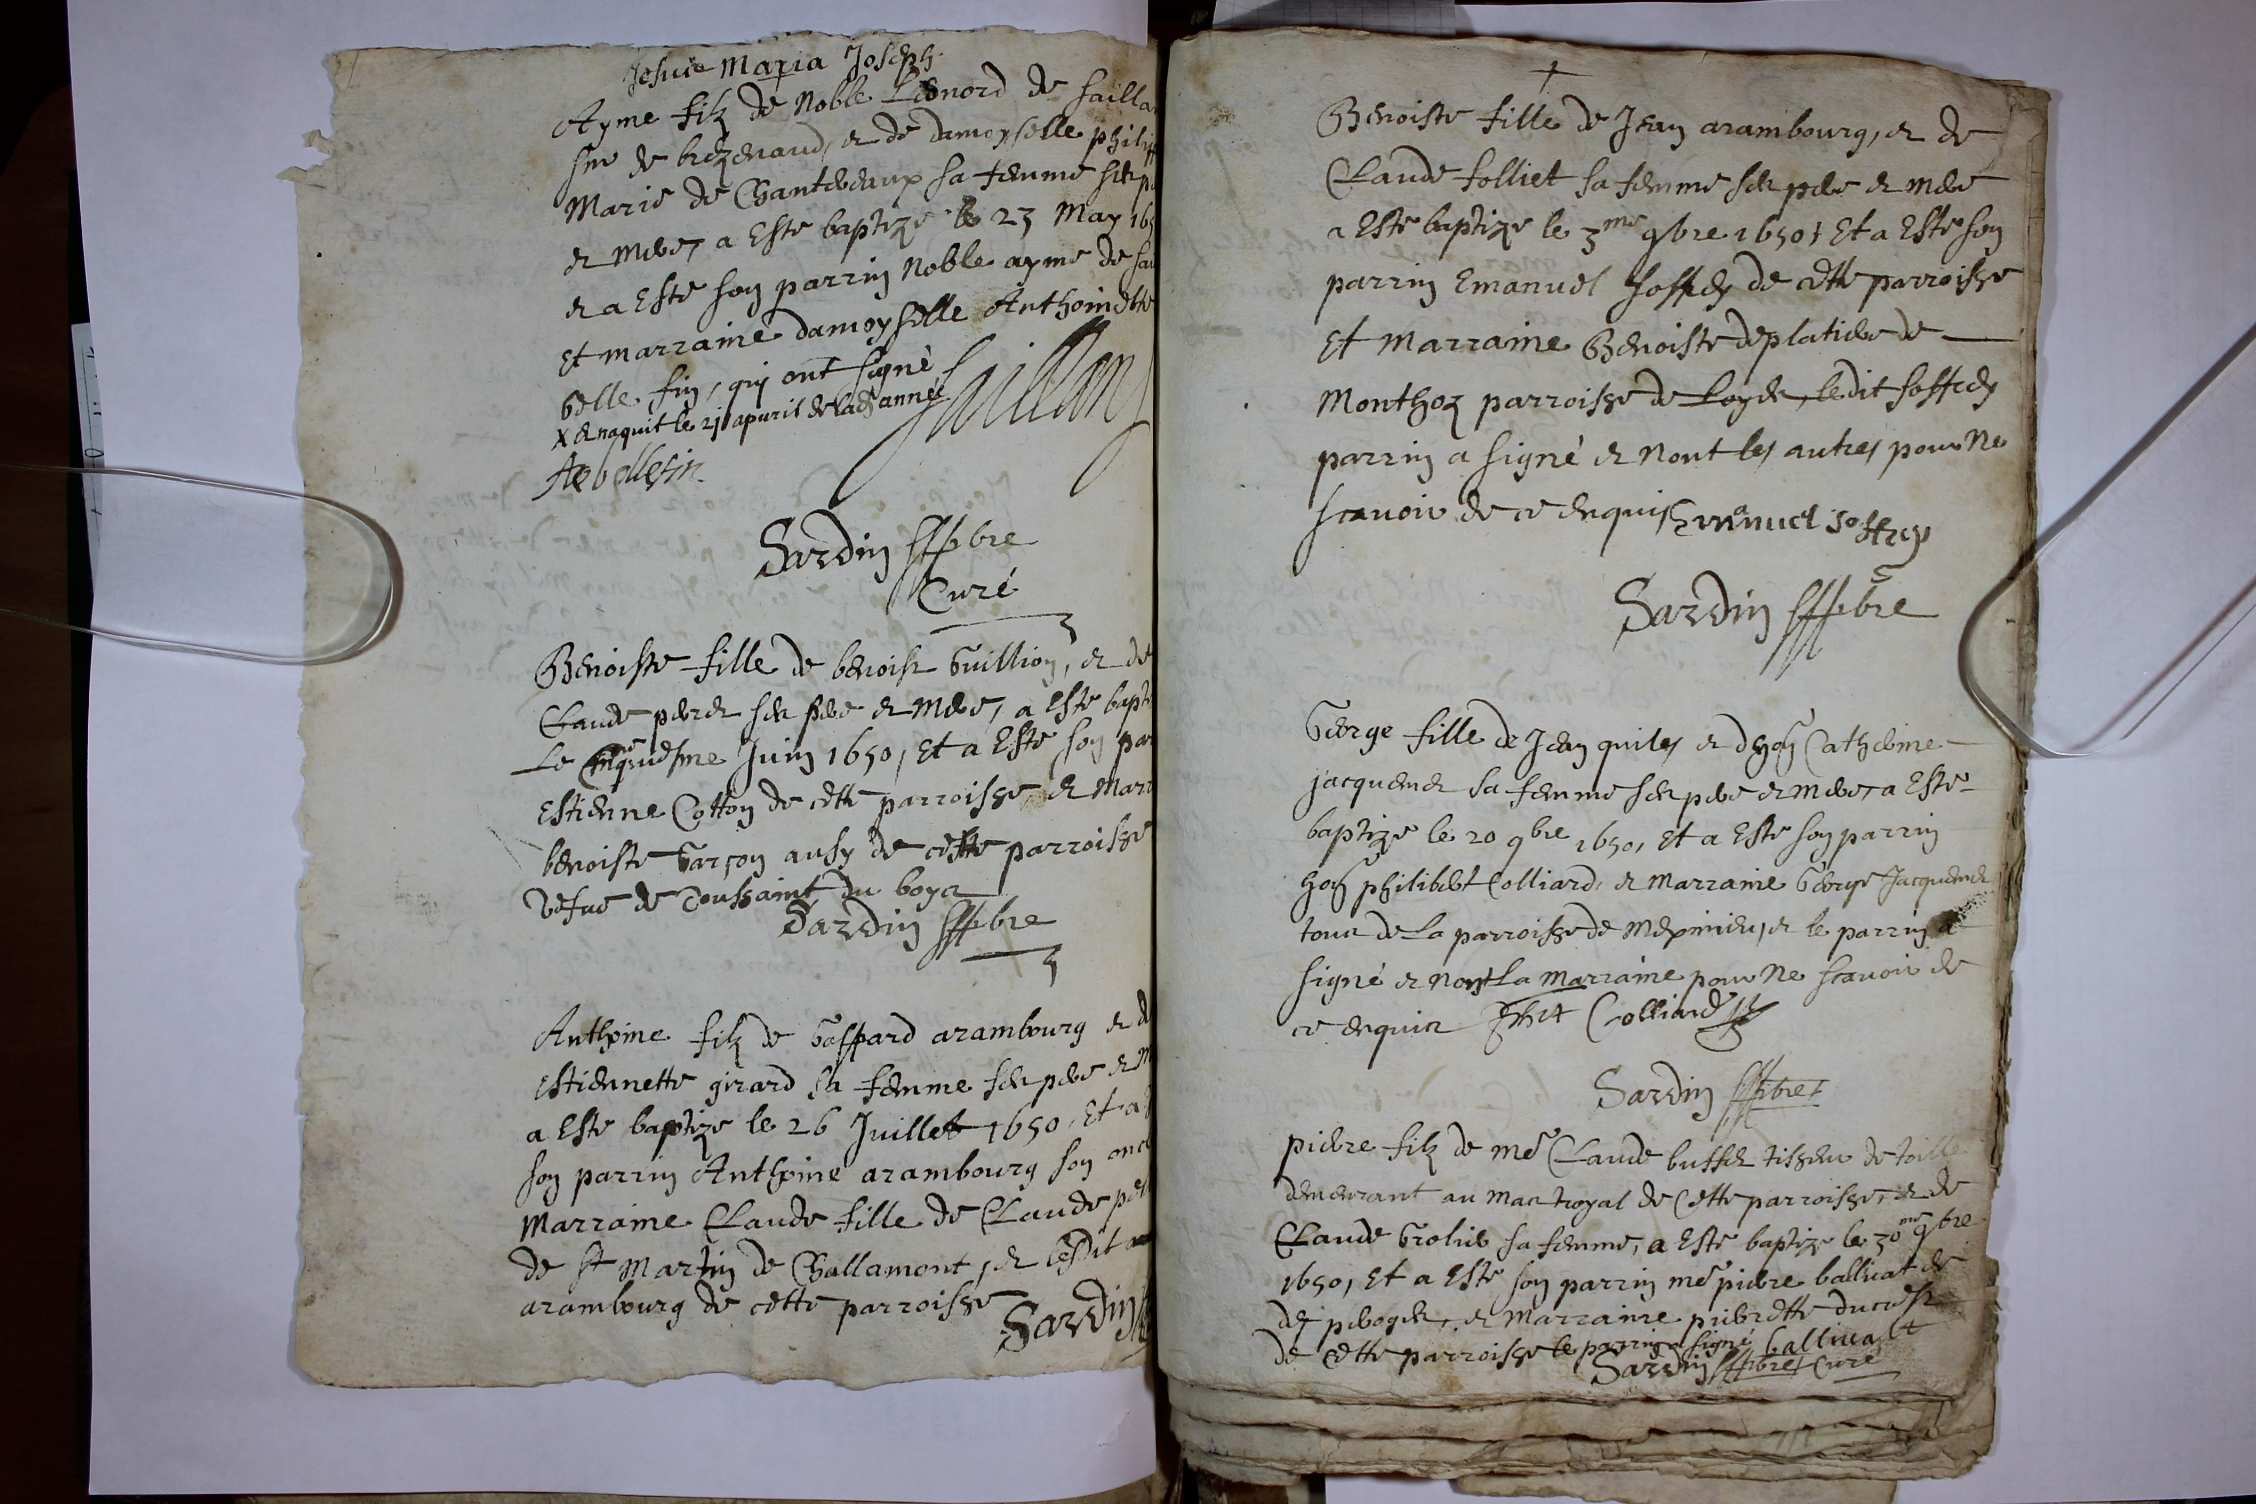 Jesuie Maria Joseph
Ayme filz de Noble Leonord de Sailla
Sr de brezenaud, et de damoyselle philip
Marie de Chantereaux sa femme ses p
et mere, a Este baptize le 23 May 165
et a Este son parrin Noble ayme de Sai
Et marraine damoyselle Anthoinette
belle fin, qui ont signé
X et naquit le 21 apuril de lad année
Saillans
Ae bellefin
Sardin pbre
Curé
Benoiste fille de benoist Guillion, et de
Claude perret ses pere et mere, a Este bapti
Le Cinquiesme Juin 1650, Et a Este son par
Estienne Cotton de cette parroisse, et Marr
benoiste Garçon ausy de cette parroisse
vefue de Toussaint du boys
Sardin pbre
Anthoine filz de Gaspard arambourg et d
Estiennette girard sa femme ses pere et m
a Este baptize le 26 Juillet 1650, Et a
son parrin Anthoine arambourg son oncl
Marraine Claude fille de Claude
de St Martin de Challamont, et lesdit
arambourg de cette parroisse
Sardin
Benoiste fille de Jean arambourg, et de
Claude folliet sa femme ses pere et mere
a Este baptize le 3me 9bre 1650, Et a Este son
parrin Emanuel Joffrey de cette parroisse
Et Marraine Benoiste deplatiere de
Monthoz parroisse de Loyes, ledit Joffrey
parrin a signé et Nont les autres pour Ne
scauoir de ce enquis Emanuel Joffrey
Sardin pbre
George fille de Jean quiles et dhon Catherine
jacquemet sa femme ses pere et mere, a Este
baptize le 20 9bre 1650, Et a Este son parrin
hon philibert Colliard, et Marraine George Jacquemet
tous de La parroisse de Meximieu, et le parrin a
signé et Non La Marraine pour Ne scauoir de
ce enquis Phit Colliard
Sardin pbre
pierre filz de me Claude buffet tisseur de toille
demeurant au Mas royal de Cette parroisse, et de
Claude Grolier sa femme, a Este baptize le 30me 9bre
1650, Et a Este son parrin me pierre balliuat de
de peroges, et Marraine pierrette ducrest
de Cette parroisse le parrin a signé balliuat
Sardin pbre Curé